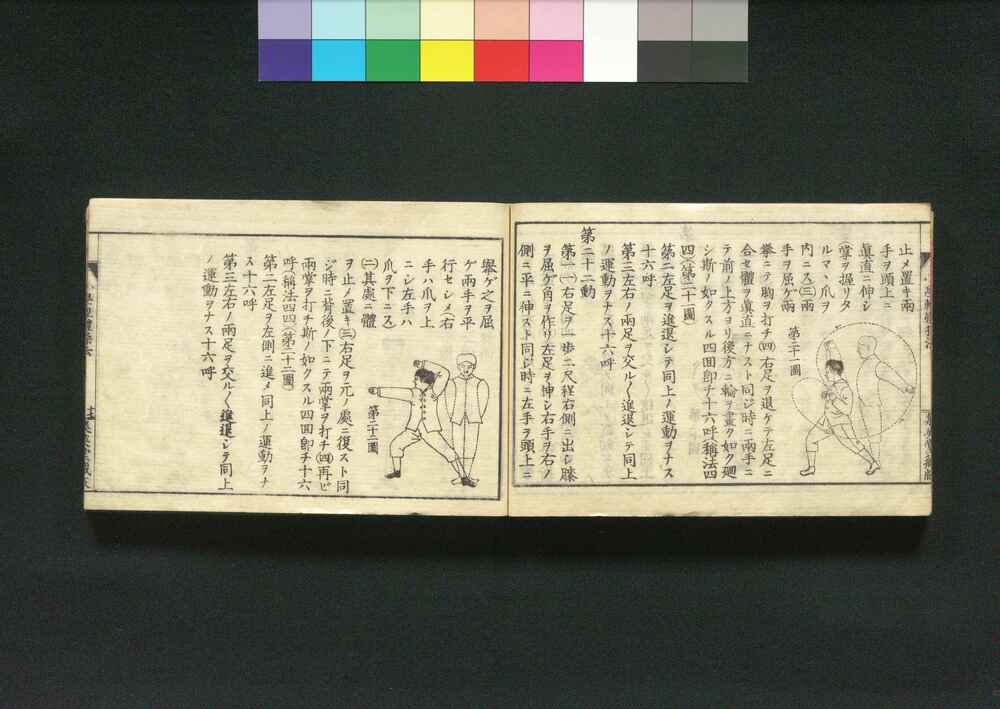 止メ置キ兩
手ヲ頭上ニ
眞直ニ伸シ
(掌ヲ握リタ
ルマヽ爪ヲ
内ニス)(三)兩
手ヲ屈ゲ兩
拳ニテ胸ヲ打チ(四)右足ヲ退ケテ左足ニ
合セ體ヲ眞直ニナスト同ジ時ニ兩手ニ
テ前ノ上方ヨリ後方ニ輪ヲ畫ク如ク廻
シ斯ノ如クスル四囬即チ十六呼稱法四
四(第二十一圖)
第二左足ヲ進退シテ同上ノ運動ヲナス
十六呼
第三左右ノ兩足ヲ交ル〱進退シテ同上
ノ運動ヲナス十六呼
第二十二動
第一(一)右足ヲ一歩ニ尺程右側ニ出シ膝
ヲ屈ゲ角ヲ作リ左足ヲ伸シ右手ヲ右ノ
側ニ平ニ伸スト同ジ時ニ左手ヲ頭上ニ
第二十一圖
擧ゲ之ヲ屈
ゲ兩手ヲ平
行セシメ(右
手ハ爪ヲ上
ニシ左手ハ
爪ヲ下ニス)
(二)其處ニ體
ヲ止メ置キ(三)右足ヲ元ノ處ニ復スト同
ジ時ニ背後ノ下ニテ兩掌ヲ打チ(四)再ビ
兩掌ヲ打チ斯ノ如クスル四囬即チ十六
呼稱法四四(第二十二圖)
第二左足ヲ左側ニ進メ同上ノ運動ヲナ
ス十六呼
第三左右ノ兩足ヲ交ル〱進退シテ同上
ノ運動ヲナス十六呼
第二十二圖